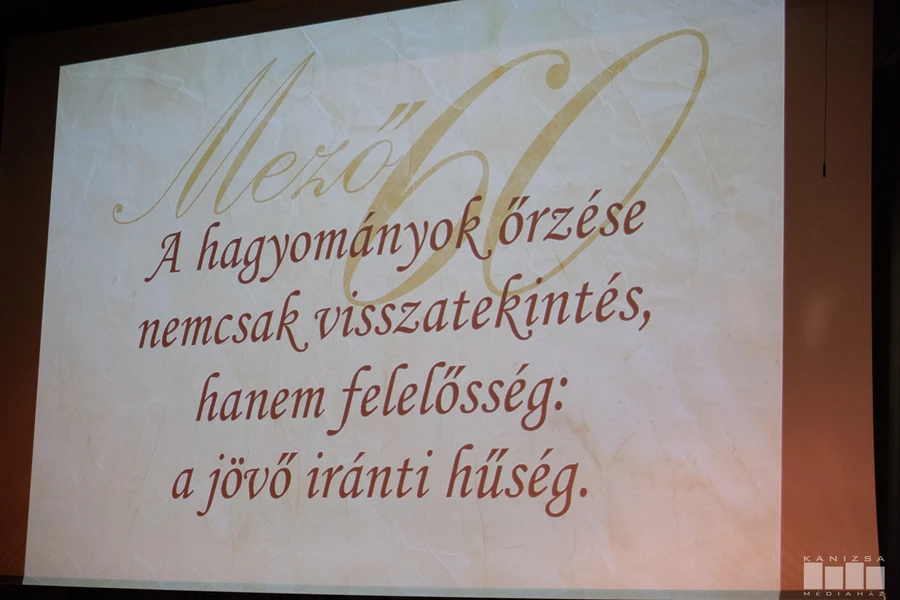 Mező 60
A hagyományok őrzése
nemcsak visszatekintés,
hanem felelősség:
a jövő iránti hűség.
KANIZSA
MÉDIAHÁZ